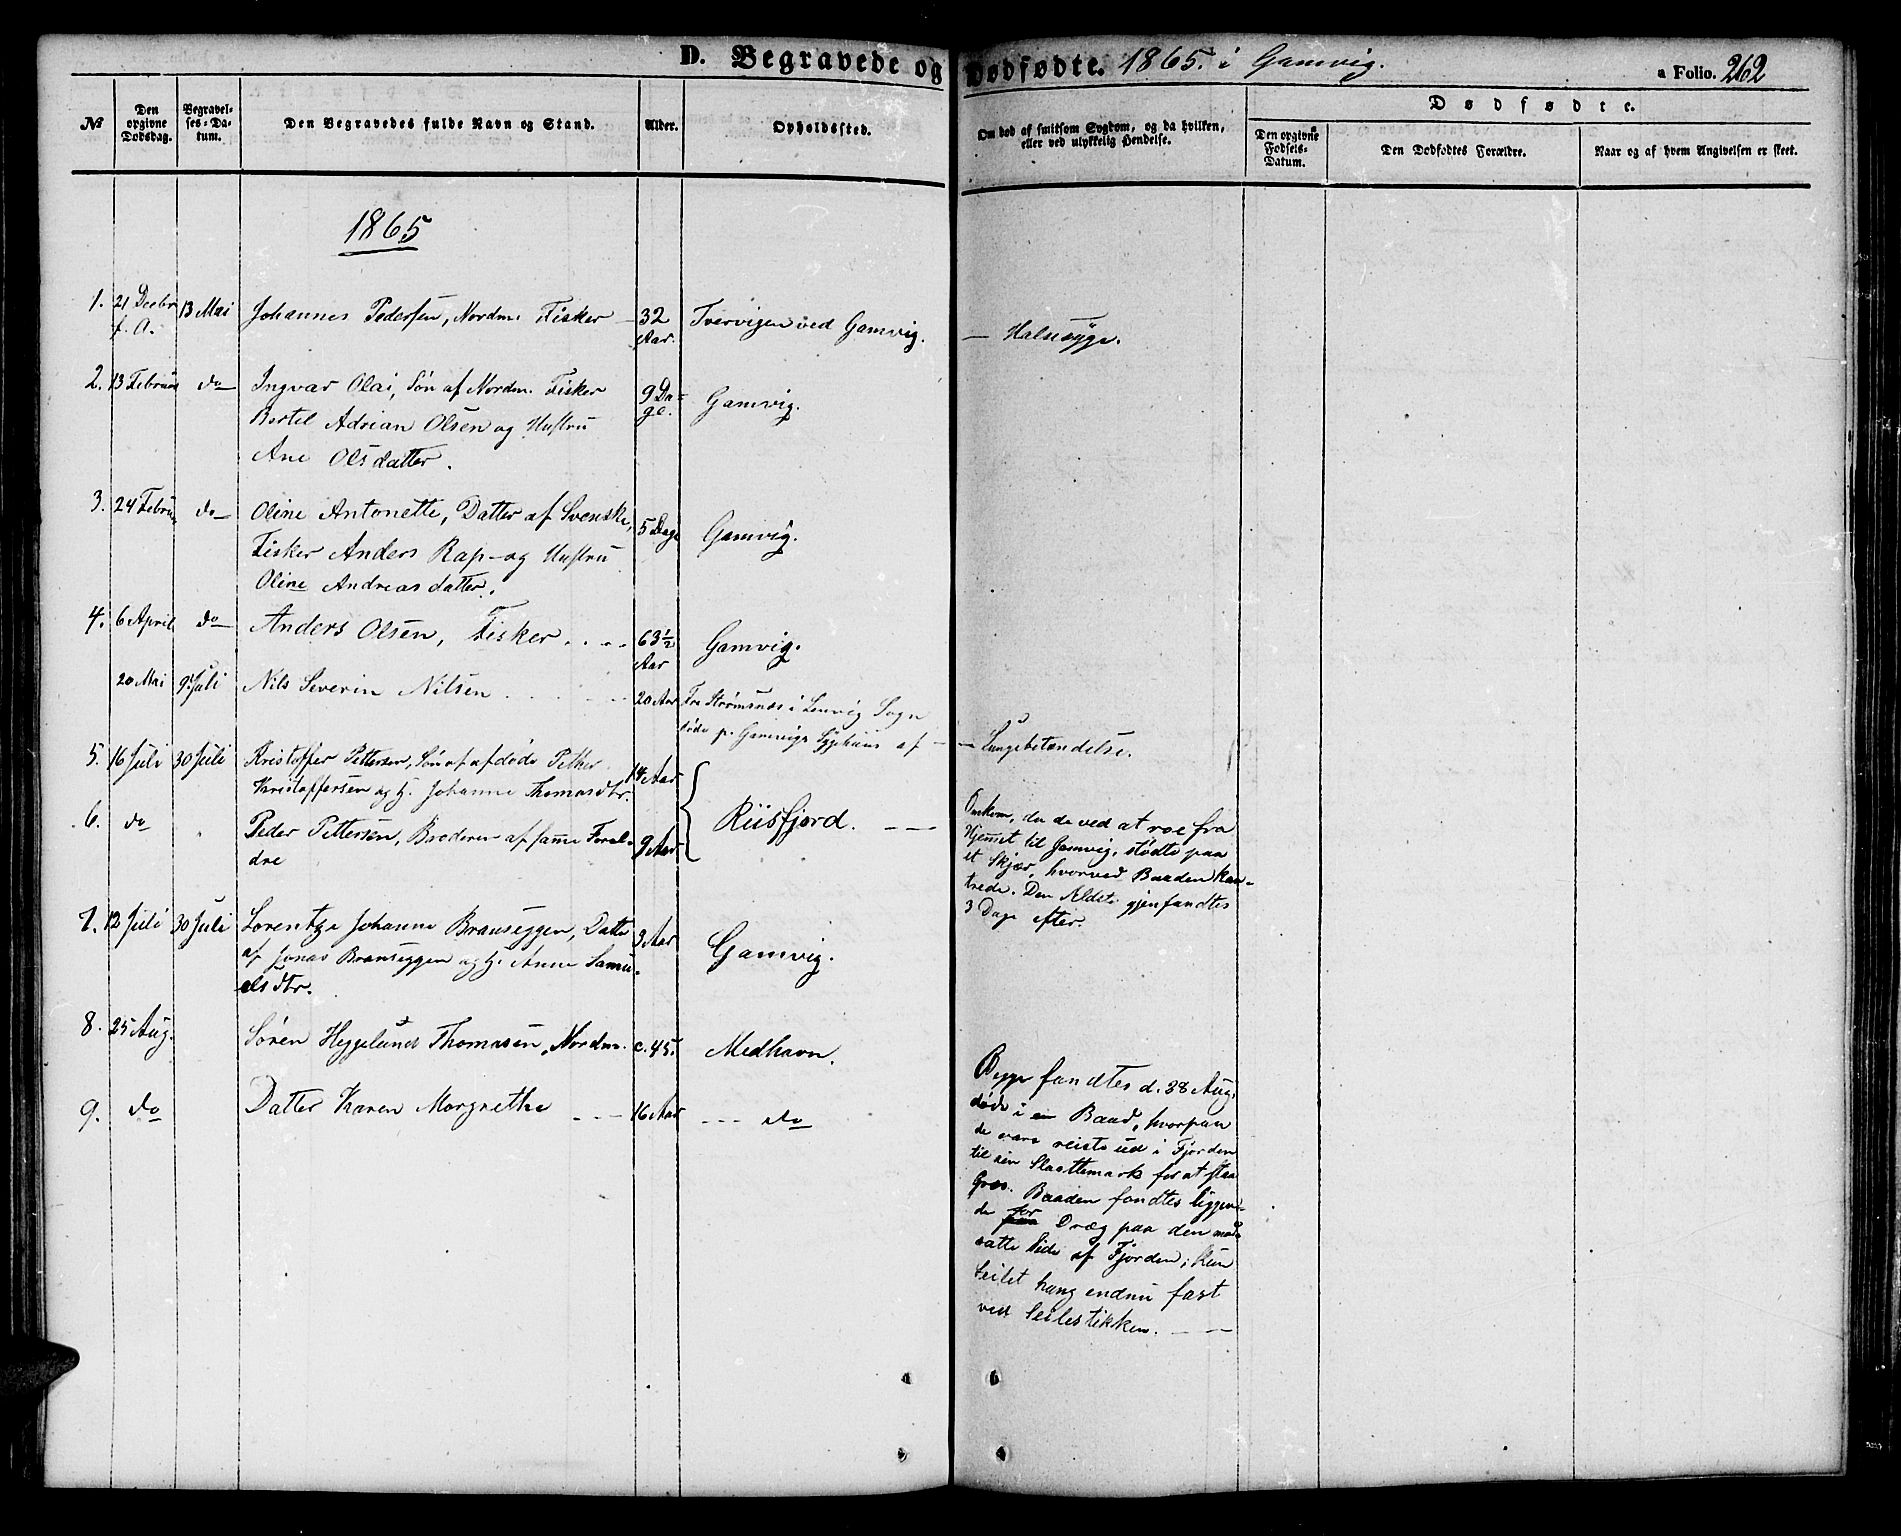 D. Begravede og Dødfødte. 1865. i Gamvig.
a Folio. 262
№
Den opgivne Dødsdag.
Begravelses-Datum.
Den Begravedes fulde Navn og Stand.
Alder.
Opholdssted.
Om død af smitsom Sygdom, og da hvilken,
eller ved ulykkelig Hendelse.
Dødfødte.
Den opgivne Fødsels-Datum.
Den Dødfødtes Forældre.
Naar og af hvem Angivelsen er skeet.
1865
1. 21 Decbr 13 Mai Johannes Pedersen, Nordm. Fisker 32 Tvervigen ved Gamvig. — Halssyge.
f. A. Aar.
2. 13 Februar do Ingvar Olai, Søn af Nordm. Fisker 9 Da- Gamvig.
Bertel Adrian Olsen og Hustru ge.
Ane Olsdatter.
3. 24 Februar do Oline Antonette, Datter af Svenske, 5 Dage Gamvig.
Fisker Anders Rap og Hustru
Oline Andreasdatter.
4. 6 April do Anders Olsen, Fisker . . . 63½ Gamvig.
Aar
20 Mai 9 Juli Nils Severin Nilsen 20 Aar Fra Strømsnæs i Lenvig Sogn
døde p. Gamvigs Sygehuus af — — Lungebetændelse.
5. 16 Juli 30 Juli Kristoffer Pettersen, Søn af afdøde Petter 14 Aar
Kristoffersen og H. Johanne Thomasdtr.
6. do Peder Pettersen, Broderen af samme Foræl- 9 Aar Riisfjord. — —
dre
Omkom, da de ved at roe fra
Hjemmet til Gamvig, stødte paa
et Skjær, hvorved Baaden kan-
trede. Den Ældste gjenfandtes
3 Dage efter.
7. 12 Juli 30 Juli Lorentze Johanne Brauseggen, Datter 3 Aar Gamvig.
af Jonas Brauseggen og H. Anne Samu-
elsdtr.
8. 25 Aug. Søren Heggelund Thomasen, Nordm. c. 45. Medhavn.
9. do Datter Karen Margrethe — — 16 Aar — — do
Begge fandtes d. 28 Aug.
døde i en Baad, hvorpaa
de vare reiste ud i Fjorden
til sin Slaattemark for at slaa
Græs. Baaden fandtes liggen-
de for Dræg paa den mod-
satte Side af Fjorden; kun
Seilet hang endnu fast
ved Seilestikken. — —